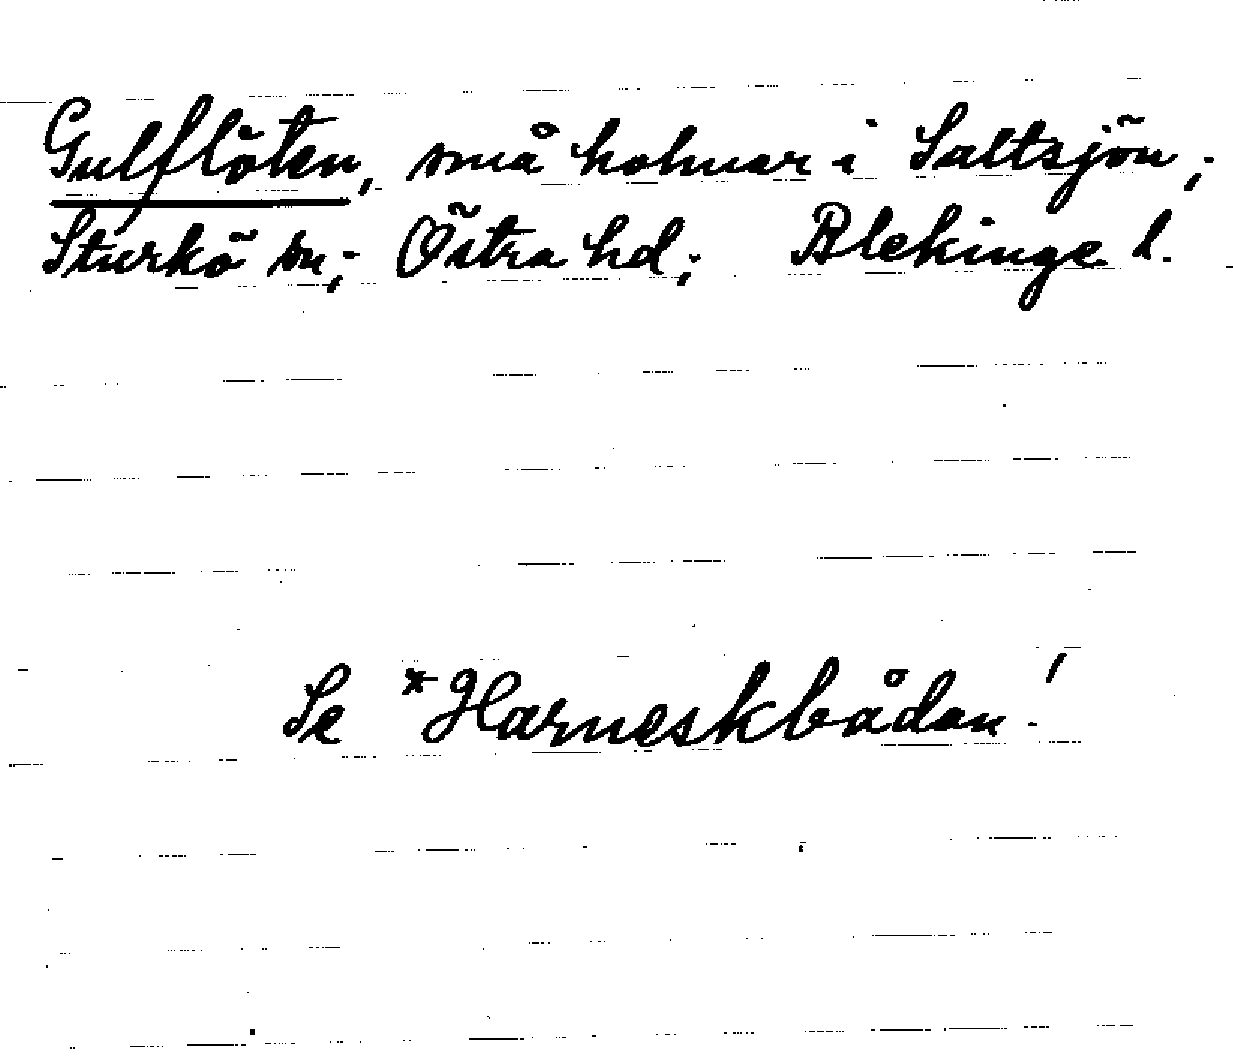 Gulflöten, små holmar i Saltsjön;
Sturkö sn; Östra hd; Blekinge l.
Se *Harneskbådan!